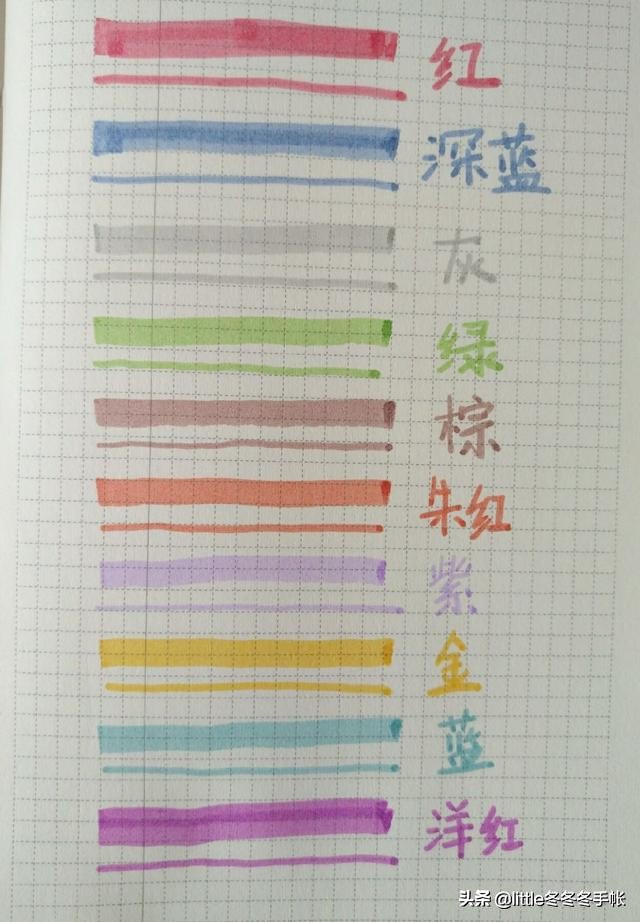 红
深蓝
灰
绿
棕
朱红
紫
金
蓝
洋红
头条 @little冬冬冬手帐